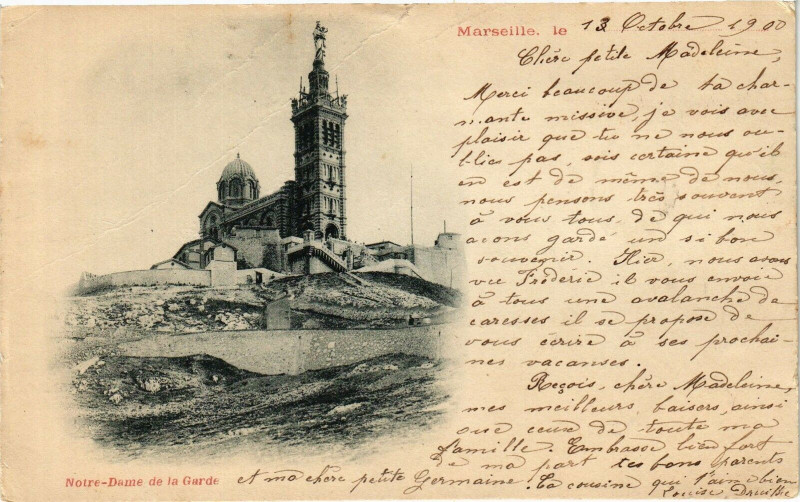 Marseille, le 13 Octobre 1900
Chère petite Madeleine,
Merci beaucoup de ta char-
mante missive, je vois avec
plaisir que tu ne nous ou-
blies pas, sois certaine qu'il
en est de même de nous,
nous pensons très souvent
à vous tous, de qui nous
avons gardé un si bon
souvenir. Hier, nous avons
vu Frédéric il vous envoie
à tous une avalanche de
caresses il se propose de
vous écrire à ses prochai-
nes vacances.
Reçois, chère Madeleine,
mes meilleurs baisers, ainsi
que ceux de toute ma
famille. Embrasse bien fort
de ma part tes bons parents
Notre-Dame de la Garde et ma chère petite Germaine. Ta cousine qui t'aime bien
Louise